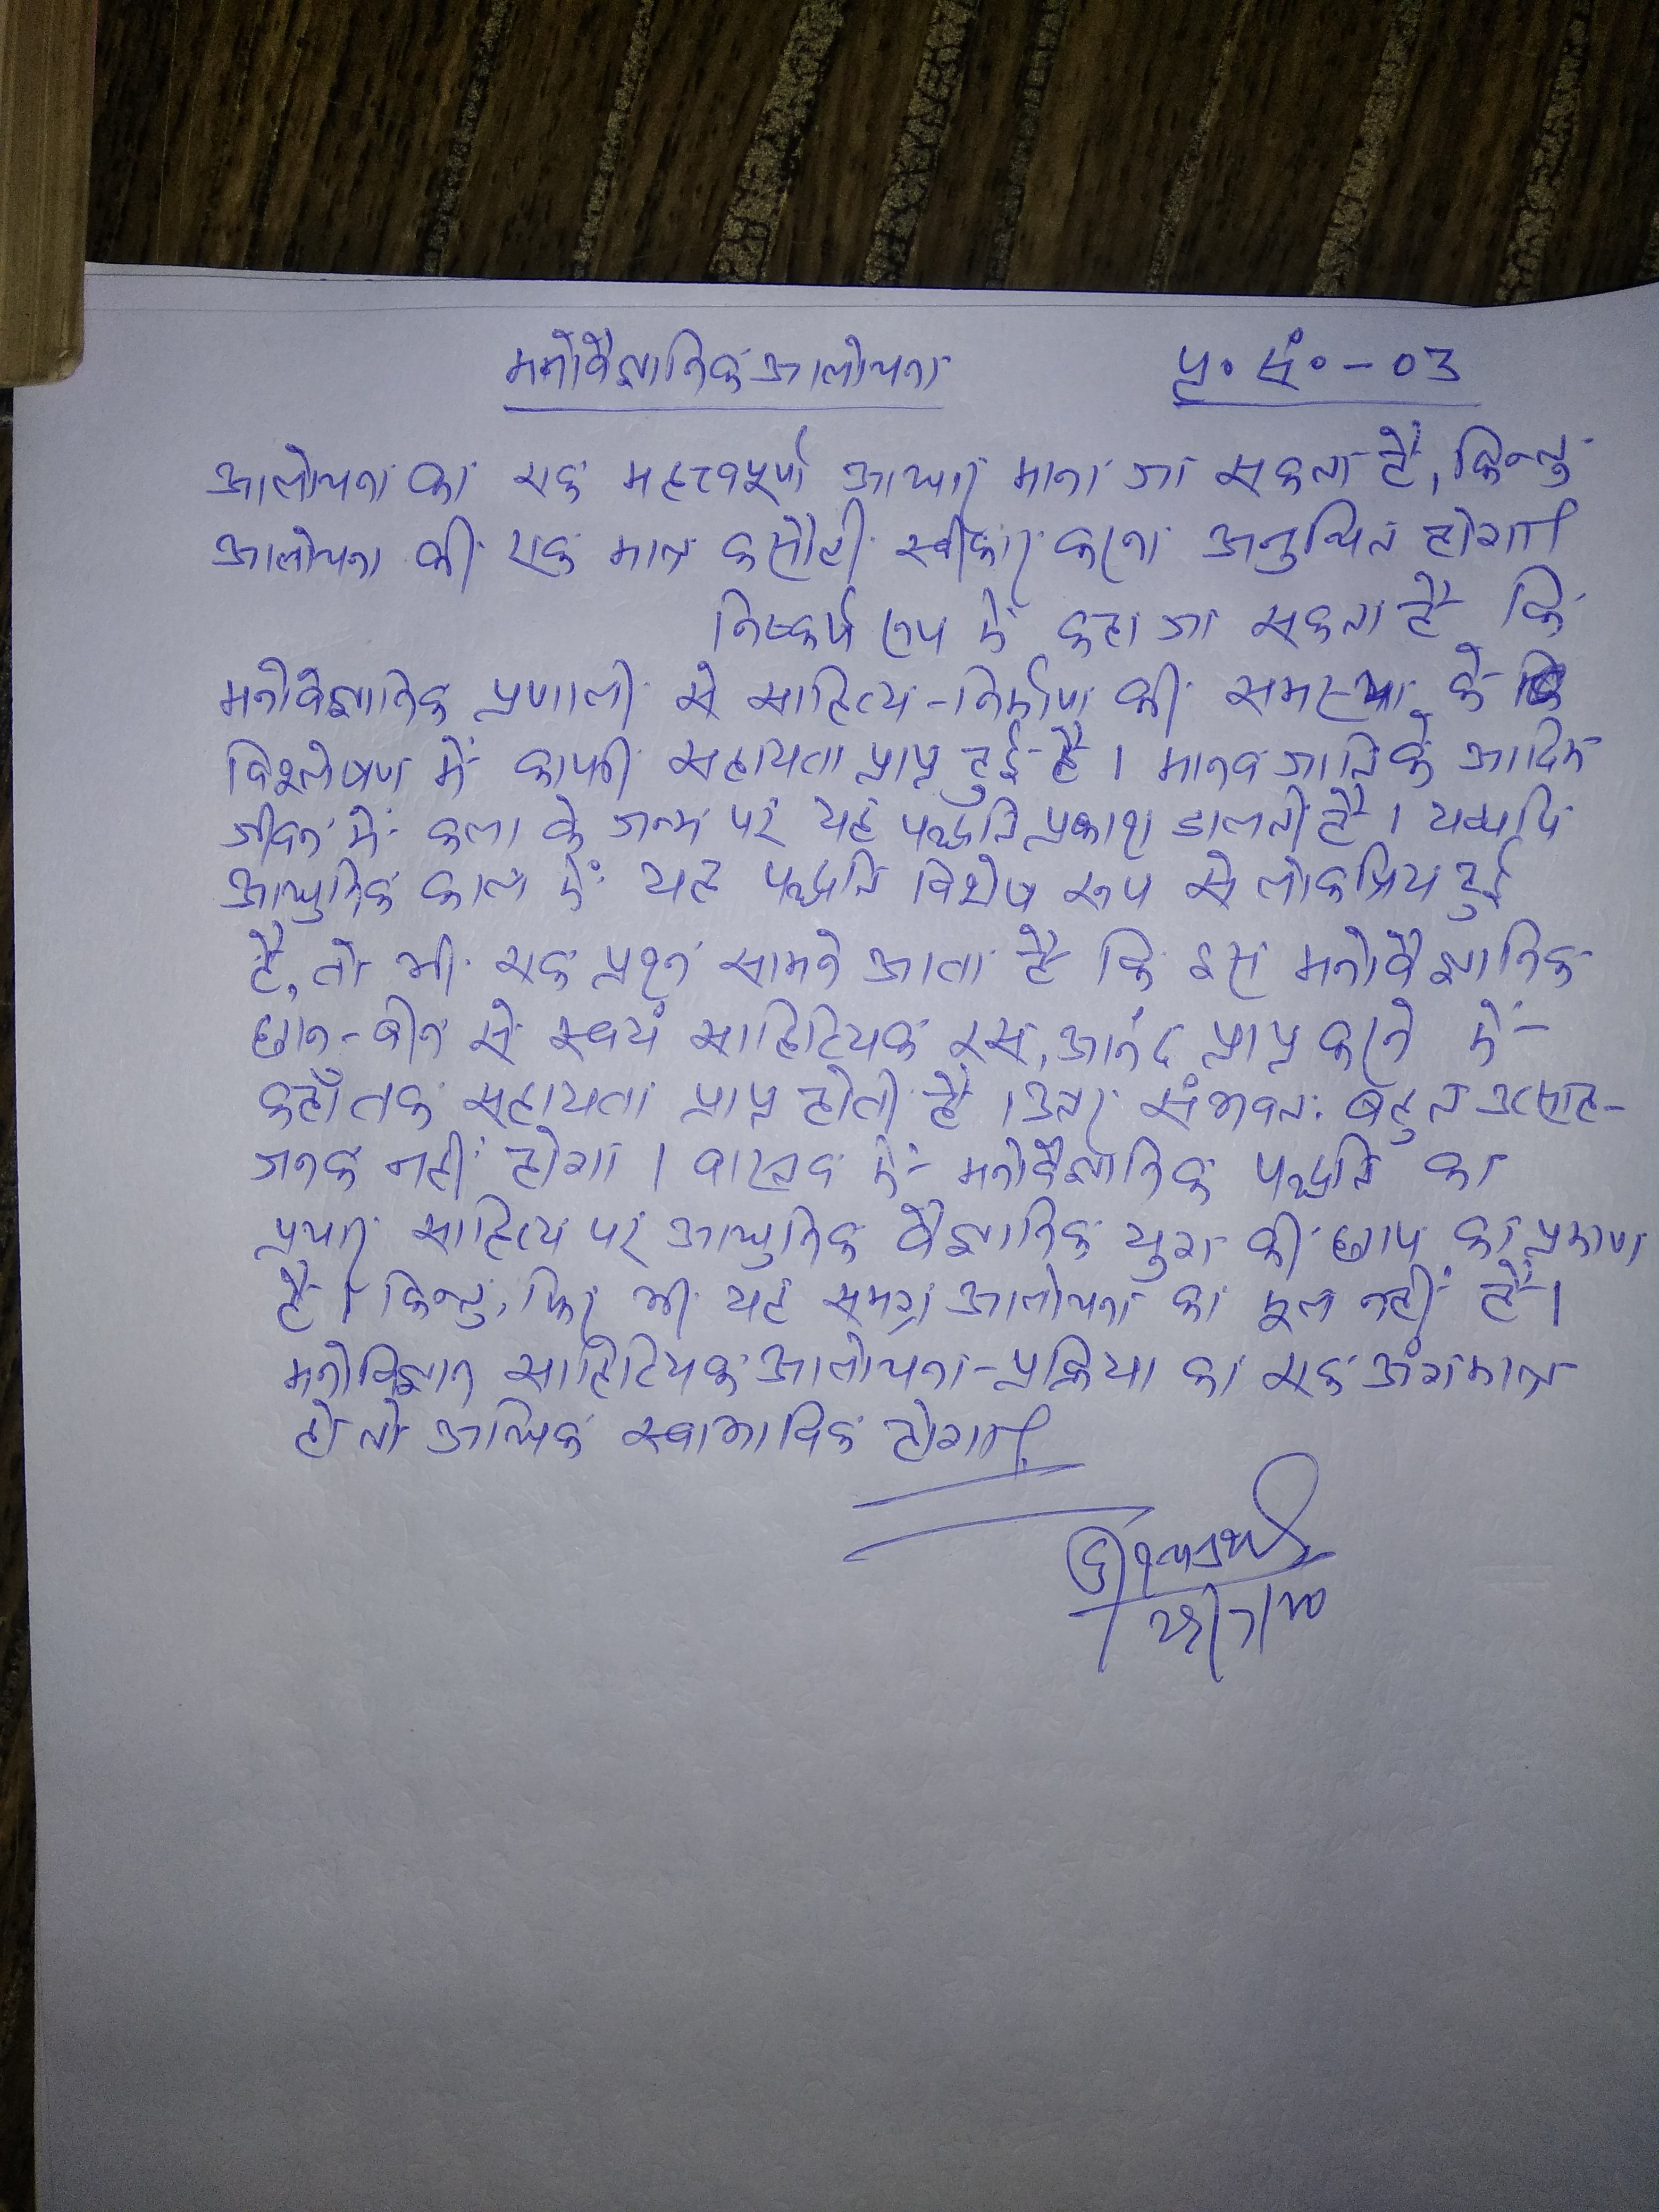 मनोवैज्ञानिक आलोचना पृ॰ सं॰ - 03
आलोचना का एक महत्वपूर्ण आधार माना जा सकता है, किन्तु
आलोचना की एक मात्र कसौटी स्वीकार करना अनुचित होगा।
निष्कर्ष रूप में कहा जा सकता है कि
मनोवैज्ञानिक प्रणाली से साहित्य-निर्माण की समस्या के
विश्लेषण में काफी सहायता प्राप्त हुई है। मानव जाति के आदिम
जीवन में कला के जन्म पर यह पद्धति प्रकाश डालती है। यद्यपि
आधुनिक काल में यह पद्धति विशेष रूप से लोकप्रिय हुई
है, तो भी एक प्रश्न सामने आता है कि इस मनोवैज्ञानिक
छान-बीन से स्वयं साहित्यिक रस, आनंद प्राप्त करने में
कहाँ तक सहायता प्राप्त होती है। उत्तर संभवतः बहुत उत्साह-
जनक नहीं होगा। वास्तव में मनोवैज्ञानिक पद्धति का
प्रचार साहित्य पर आधुनिक वैज्ञानिक युग की छाप का प्रमाण
है। किन्तु, फिर भी यह समग्र आलोचना का मूल नहीं है।
मनोविज्ञान साहित्यिक आलोचना-प्रक्रिया का एक अंग मात्र
हो तो अधिक स्वाभाविक होगा।